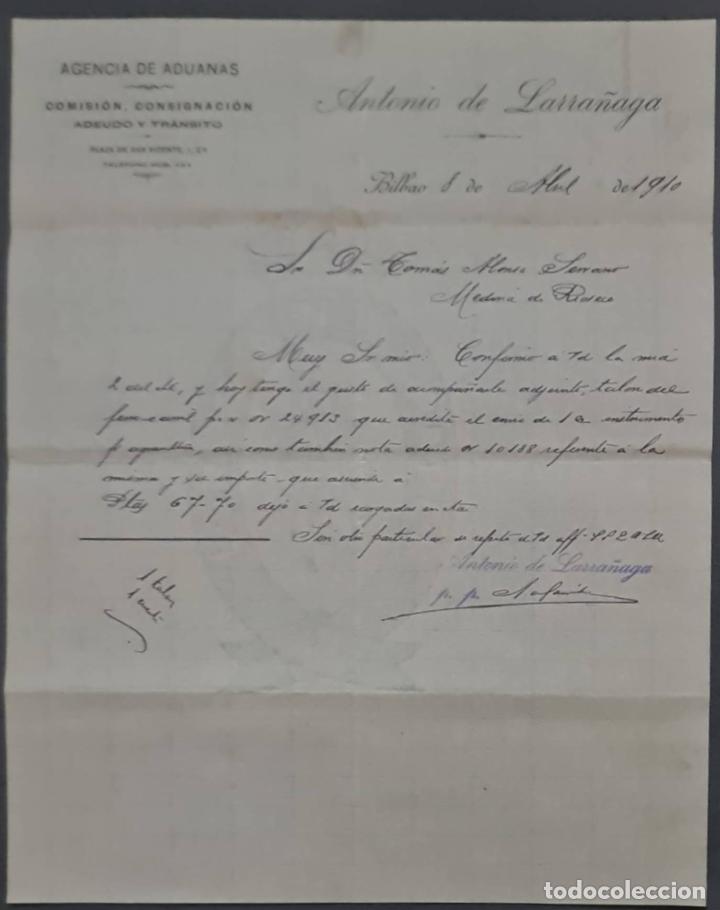 AGENCIA DE ADUANAS
COMISIÓN, CONSIGNACIÓN
ADEUDO Y TRÁNSITO
PLAZA DE SAN VICENTE, 1, 2.º
Antonio de Larrañaga
Bilbao 8 de Abril de 1910
Sr Dn Tomás Alonso Serrano
Medina de Rioseco
Muy Sr mio: Confirmo á Vd la mia
2 del , y hoy tengo el gusto de acompañarle adjunto, talon del
ferrocarril nº 24983 que acredita el envio de 1 instrumento
, asi como tambien nota adeudo nº 10188 referente á la
misma y su importe que asciende á
Ptas 67-70 dejo á Vd cargadas en cta
Sin otro particular se repite de Vd aff
Antonio de Larrañaga
p. p.
1 talon
1
todocoleccion
todocoleccion.net